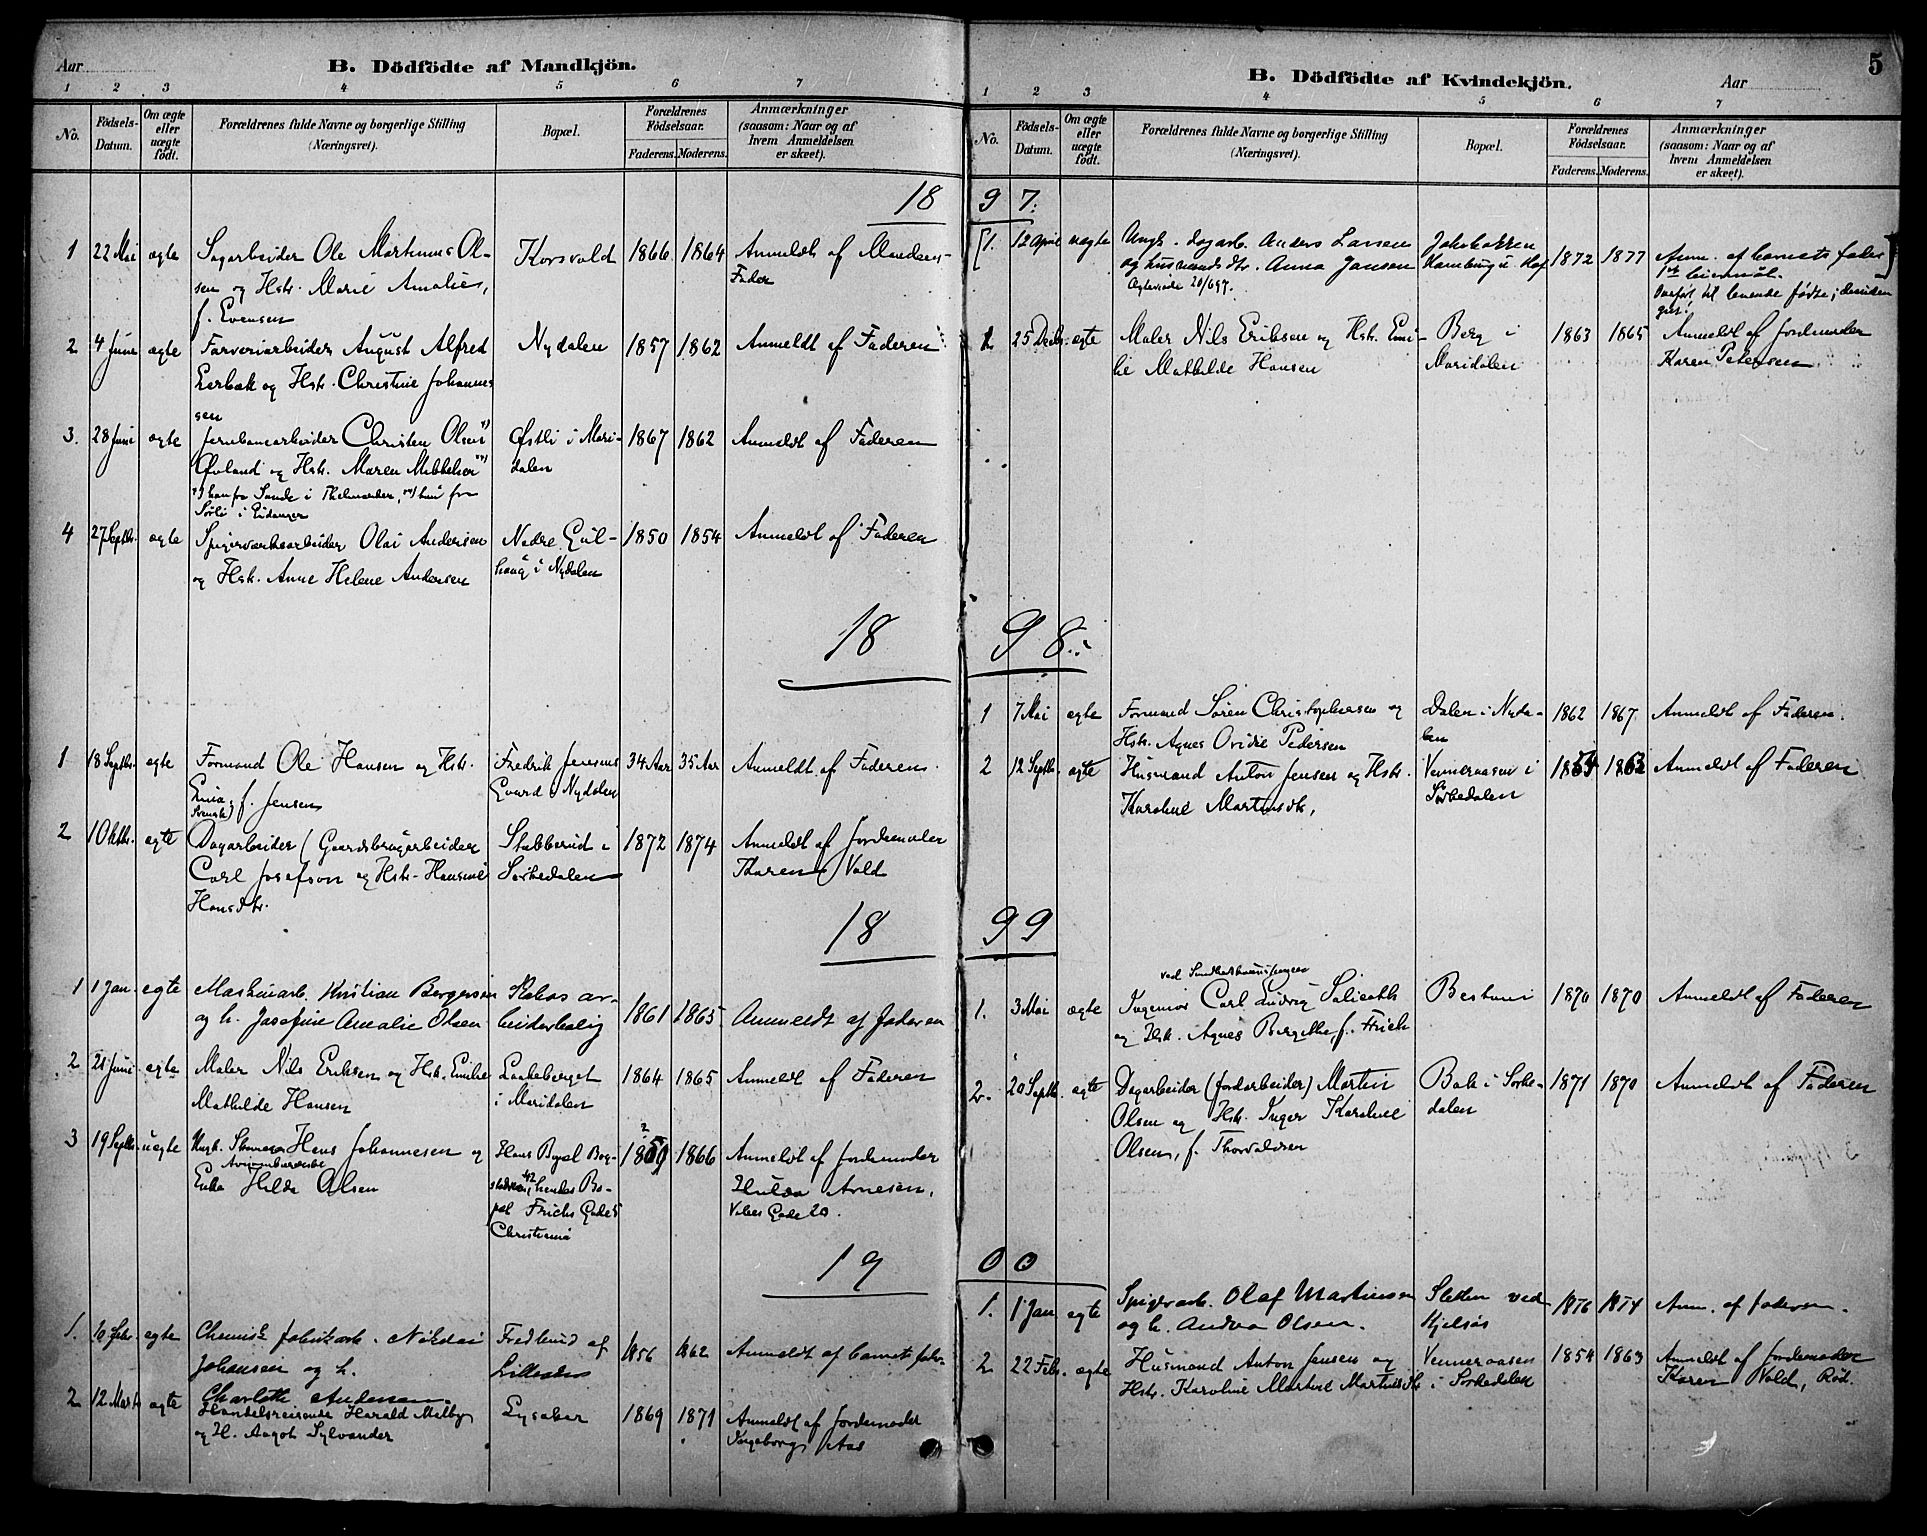 Aar
B. Dödfödte af Mandkjön.
1 2 3 4 5 6 7
No.
Födsels-
Datum.
Om ægte
eller
uægte
födt.
Forældrenes fulde Navne og borgerlige Stilling
(Næringsvei).
Bopæl.
Forældrenes
Födselsaar.
Faderens. Moderens.
Anmærkninger
(saasom: Naar og af
hvem Anmeldelsen
er skeet).
18
1 22 Mai ægte Sagarbeider Ole Martinius Ol- Korsvold 1866 1864 Anmeldt af Mandens
sen og Hstr. Marie Amalie, Fader
f. Evensen
2 4 Juni ægte Farveriarbeider August Alfred Nydalen 1857 1862 Anmeldt af Faderen
Lerbak og Hstr. Christine Johannes
sen
3. 28 Juni ægte Jernbanearbeider Christen Olsen Østli i Mari- 1867 1862 Anmeldt af Faderen
Øvland og Hstr. Maren Mikkelsen dalen
han fra Sande i Thelemarken, hun fra
i Eidanger
4 27 Septbr. ægte Spigerværksarbeider Olai Andersen Nedre Gul- 1850 1854 Anmeldt af Faderen
og Hstr. Anne Helene Andersen haug i Nydalen
18
1 18 Septbr. egte Formand Ole Hansen og Hstr. Fredrik Jensens 34 Aar 35 Aar Anmeldt af Faderen
f. Jensen Gaard i Nydalen
Svensk)
2 1 Oktbr. egte Dagarbeider (Gaardsbrugarbeider Stubberud i 1872 1874 Anmeldt af Jordemoder
Carl Josefson og Hstr. Hansine Sørkedalen Karen Vold
Hansdtr.
18
1 1 Jan. egte Maskinarb. Kristian Bergersen ar- 1861 1865 Anmeldt af faderen
og h. Josefine Amalie Olsen beiderbolig
2 21 Juni egte Maler Nils Eriksen og Hstr. Emilie 1864 1865 Anmeldt af Faderen
Mathilde Hansen i Maridalen
3 19 Septbr. uegte Ungk. Hans Johannesen og Hans Bopæl Bog- 1859 1866 Anmeldt af Jordemoder
Enke Hilda Olsen hendes Bo- Hulda Arnesen,
pæl Frichs Gade 5 Gade 20.
Christiania
19
1. 10 Febr. egte Chemisk fabrikarb. Nikolai Fredlund af 1856 1862 Anmeldt af barnets fader
Johansen og h. Lilleaker
Charlotte Andersen
2 12 Marts egte Handelsreisende Harald Melby Lysaker 1869 1871 Anmeldt af Jordemoder
og H. Aagot Sylvander Ingeborg Aas
B. Dödfödte af Kvindekjön.
Aar
5
1 2 3 4 5 6 7
No.
Födsels-
Datum.
Om ægte
eller
uægte
födt.
Forældrenes fulde Navne og borgerlige Stilling
(Næringsvei).
Bopæl.
Forældrenes
Födselsaar.
Faderens. Moderens.
Anmærkninger
(saasom: Naar og af
hvem Anmeldelsen
er skeet).
97.
[1. 12 April uægte Ungk. dagarb. Anders Larsen 1872 1877 Anm. af barnets fader ]
og husmands dtr. Anna Jansen 1ste leiermål.
20/6 97. Overført til levende fødte;
1 25 Decbr. egte Maler Nils Eriksen og Hstr. Emi- Berg i 1863 1865 Anmeldt af Jordemoder
lie Mathilde Hansen Maridalen Karen Petersen
98.
1 7 Mai egte Formand Sören Christophersen og Dalen i Nyda- 1862 1867 Anmeldt af Faderen.
Hstr. Agnes Ovidie Pedersen len
2 12 Septbr. egte Husmand Anton Jensen og Hstr. Venneraasen i 1854 1863 Anmeldt af Faderen
Karoline Martinsdtr, Sørkedalen
99
1. 3 Mai ægte Ingeniør Carl Ludvig Salicath Bestum 1870 1870 Anmeldt af Faderen
og Hstr. Agnes Bergitte, f. Frich
2. 20 Septbr. egte Dagarbeider (jordarbeider) Martin Bak i Sørke- 1871 1870 Anmeldt af Faderen
Olsen og Hstr. Inger Karoline dalen
Olsen, f. Thorvaldsen
00
1. 1 Jan egte Spigerarb. Olaf Martinsen Sletten ved 1876 1874 Anm. af faderen.
og h. Andrea Olsen. Kjelsås
2. 22 Febr. egte Husmand Anton Jensen og Venneraasen 1854 1863 Anmeldt af Jordemoder
Hstr. Karoline Martine Martinsdtr i Sørkedalen Karen Vold, Rød.